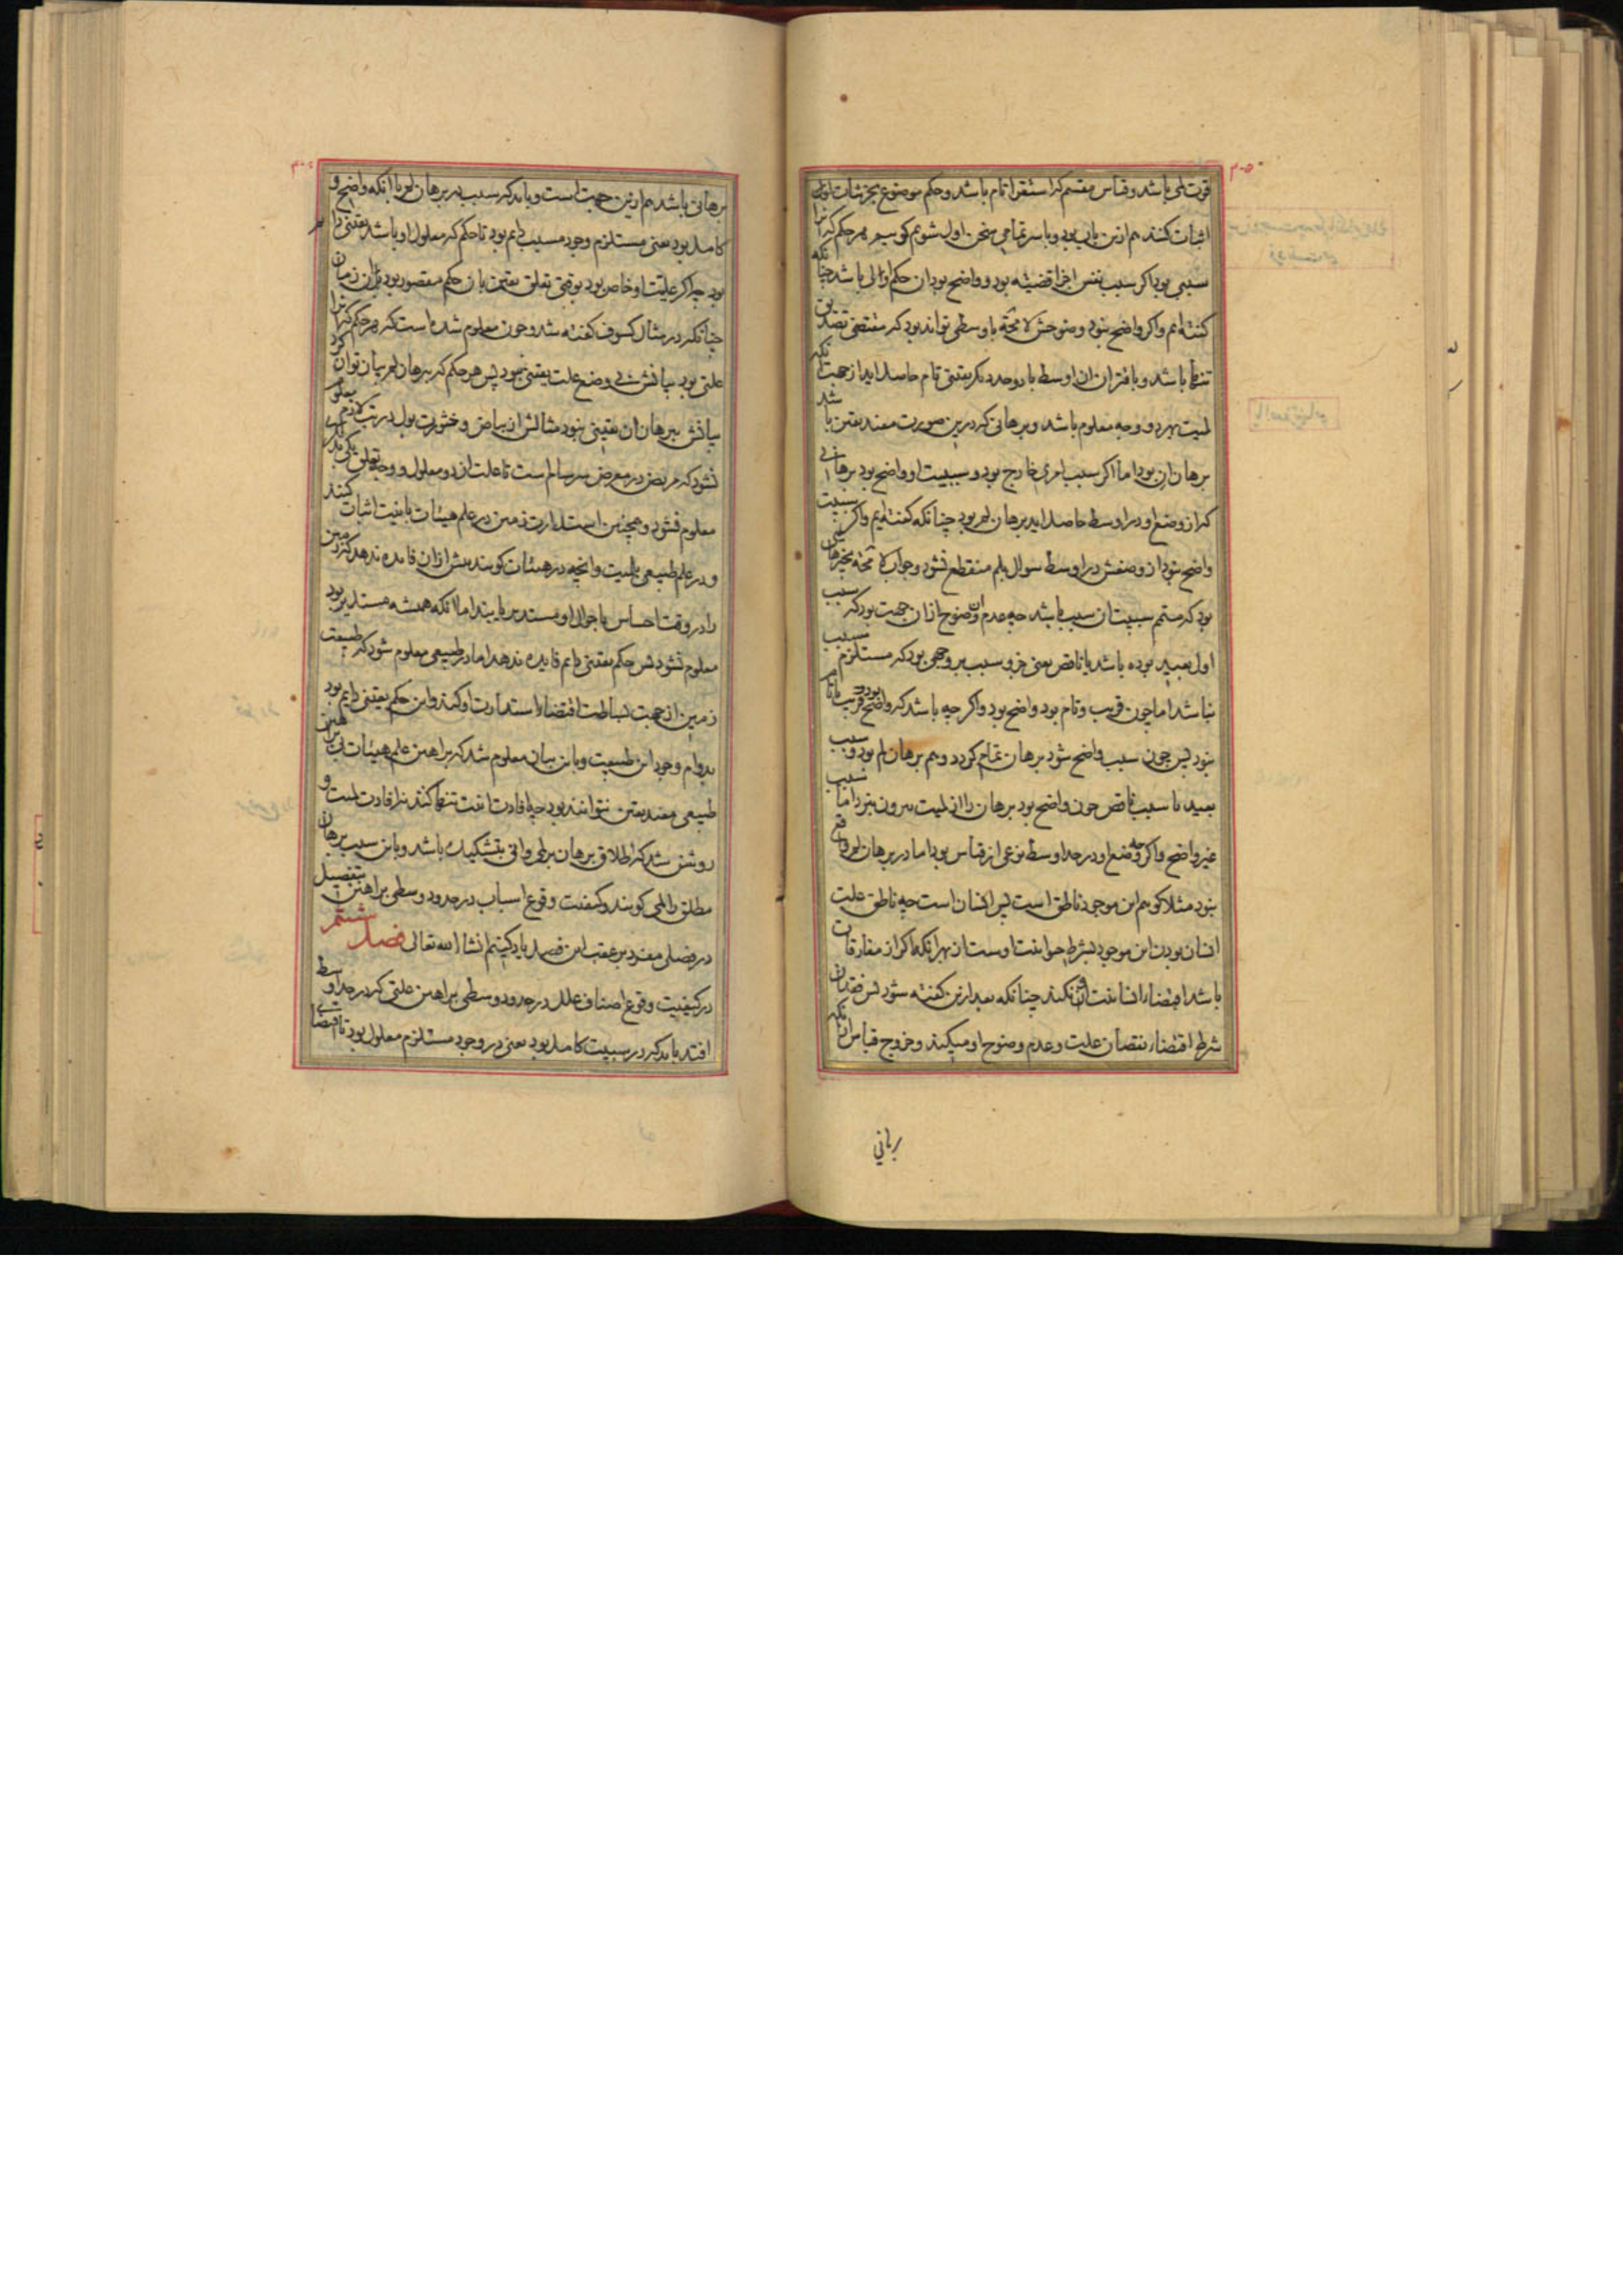 قوت لمی باشد و قیاس مقسم که استقراء تام باشد و حکم موضوع بجزئیات
اثبات کنند هم ازین باب بود و با سر تمامی سخن اول شویم کوییم هر حکم کی انرا
سببی بود اکر سبب نفس اجزا قضیه بود و واضح بود ان حکم اولی باشد چنانکه
کفته ایم و اکر واضح نبود وضوحش لامحة باوسطی تواند بود که مقتضی تصدیق
تنها باشد و باقتران ان اوسط با دو حد دیکر یقینی تام حاصل اید از جهت انکه
لمیت بهر دو وجه معلوم باشد و برهانی که درین صورت مفید یقین باشد
برهان ان بود اما اکر سبب امری خارج بود و سببیت او واضح بود برهانی
که از وضع او در اوسط حاصل اید برهان لم بود چنانکه کفته ایم و اکر سببیت
واضح نبود از وضعش در اوسط سوال بلم منقطع نشود و جواب لامحة بخیرهای
بود که متمم سببیت ان سبب باشد چه عدم وضوح ازان جهت بود که سبب
اول بعید بوده باشد یا ناقص یعنی جزو سبب بر وجهی بود که مستلزم مسبب
نباشد اما چون قریب و تام بود واضح بود و اکر چه باشد که واضح بود و قریب یا تام
نبود پس چون سبب واضح شود برهان تمام کردد و هم برهان لم بود و سبب
بعید یا سبب ناقص چون واضح بود برهان را از لمیت بیرون نبرد اما سبب
غیر واضح و اکرچه وضع او در حد اوسط نوعی از قیاس بود اما در برهان لم واقع
نبود مثلا کوییم این موجود ناطق است پس انسان است چه ناطق علیت
انسان بودن این موجود بشرط حیوانیت اوست از بهر انکه اکر از مفارقات
باشد اقتضاء انسانیت نکند چنانکه بعد ازین کفته شود پس فقدان
شرط اقتضاء نقصان علیت و عدم وضوح او میکند و خروج قیاس ازانکه
برهانی
برهانی باشد هم ازین جهت است و باید که سبب در برهان لم با انکه واضح و
کامل بود یعنی مستلزم وجود مسبب دایم بود تا حکم که معلول او باشد یقینی دایم
بود چه اکر علیت او خاص بود بوقتی تعلق یقین بان حکم مقصور بود بران زمان
چنانکه در مثال کسوف کفته شد و چون معلوم شده است که هر حکم که انرا
علتی بود بیانش بی وضع علت یقینی نبود پس هر حکم که ببرهان لم بیان توان کرد
بیانش ببرهان ان یقینی نبود مثالش از بیاض و خثورت بول در تب لازم معلوم
نشود که مریض در معرض سرسام است تا علت این دو معلول و وجه تعلق یکی بدیکری
معلوم نشود و همچنین استدارت زمین در علم هیئات بانیت اثبات کنند
و در علم طبیعی بلمیت و انچه در هیئات کویند بیش ازان فایده ندهد که زمین
را در وقت احساس باحوال او مستدیر یابند اما انکه همیشه مستدیر بود
معلوم نشود پس حکم یقینی دایم فایده ندهد اما در طبیعی معلوم شود که طبیعت
زمین از جهت بساطت اقتضاء استدارت او کند و این حکم یقینی دایم بود
بدوام وجود این طبیعت و باین بیان معلوم شد که براهین علم هیئات بی براهین
طبیعی مفید یقین نتوانند بود چه افادت انیت تنها کنند نه افادت لمیت و
روشن شد که اطلاق برهان بر لمی و انی بتشکیک باشد و باین سبب برهان
مطلق را لمی کویند و کیفیت وقوع اسباب در حدود وسطی براهین بتفصیل
در فصلی مفرد بر عقب این فصل یاد کنیم انشا الله تعالی فصل ششم
در کیفیت وقوع اصناف علل در حدود وسطی براهین علتی که در حد اوسط
افتد باید که در سببیت کامل بود یعنی در وجود مستلزم معلول بود